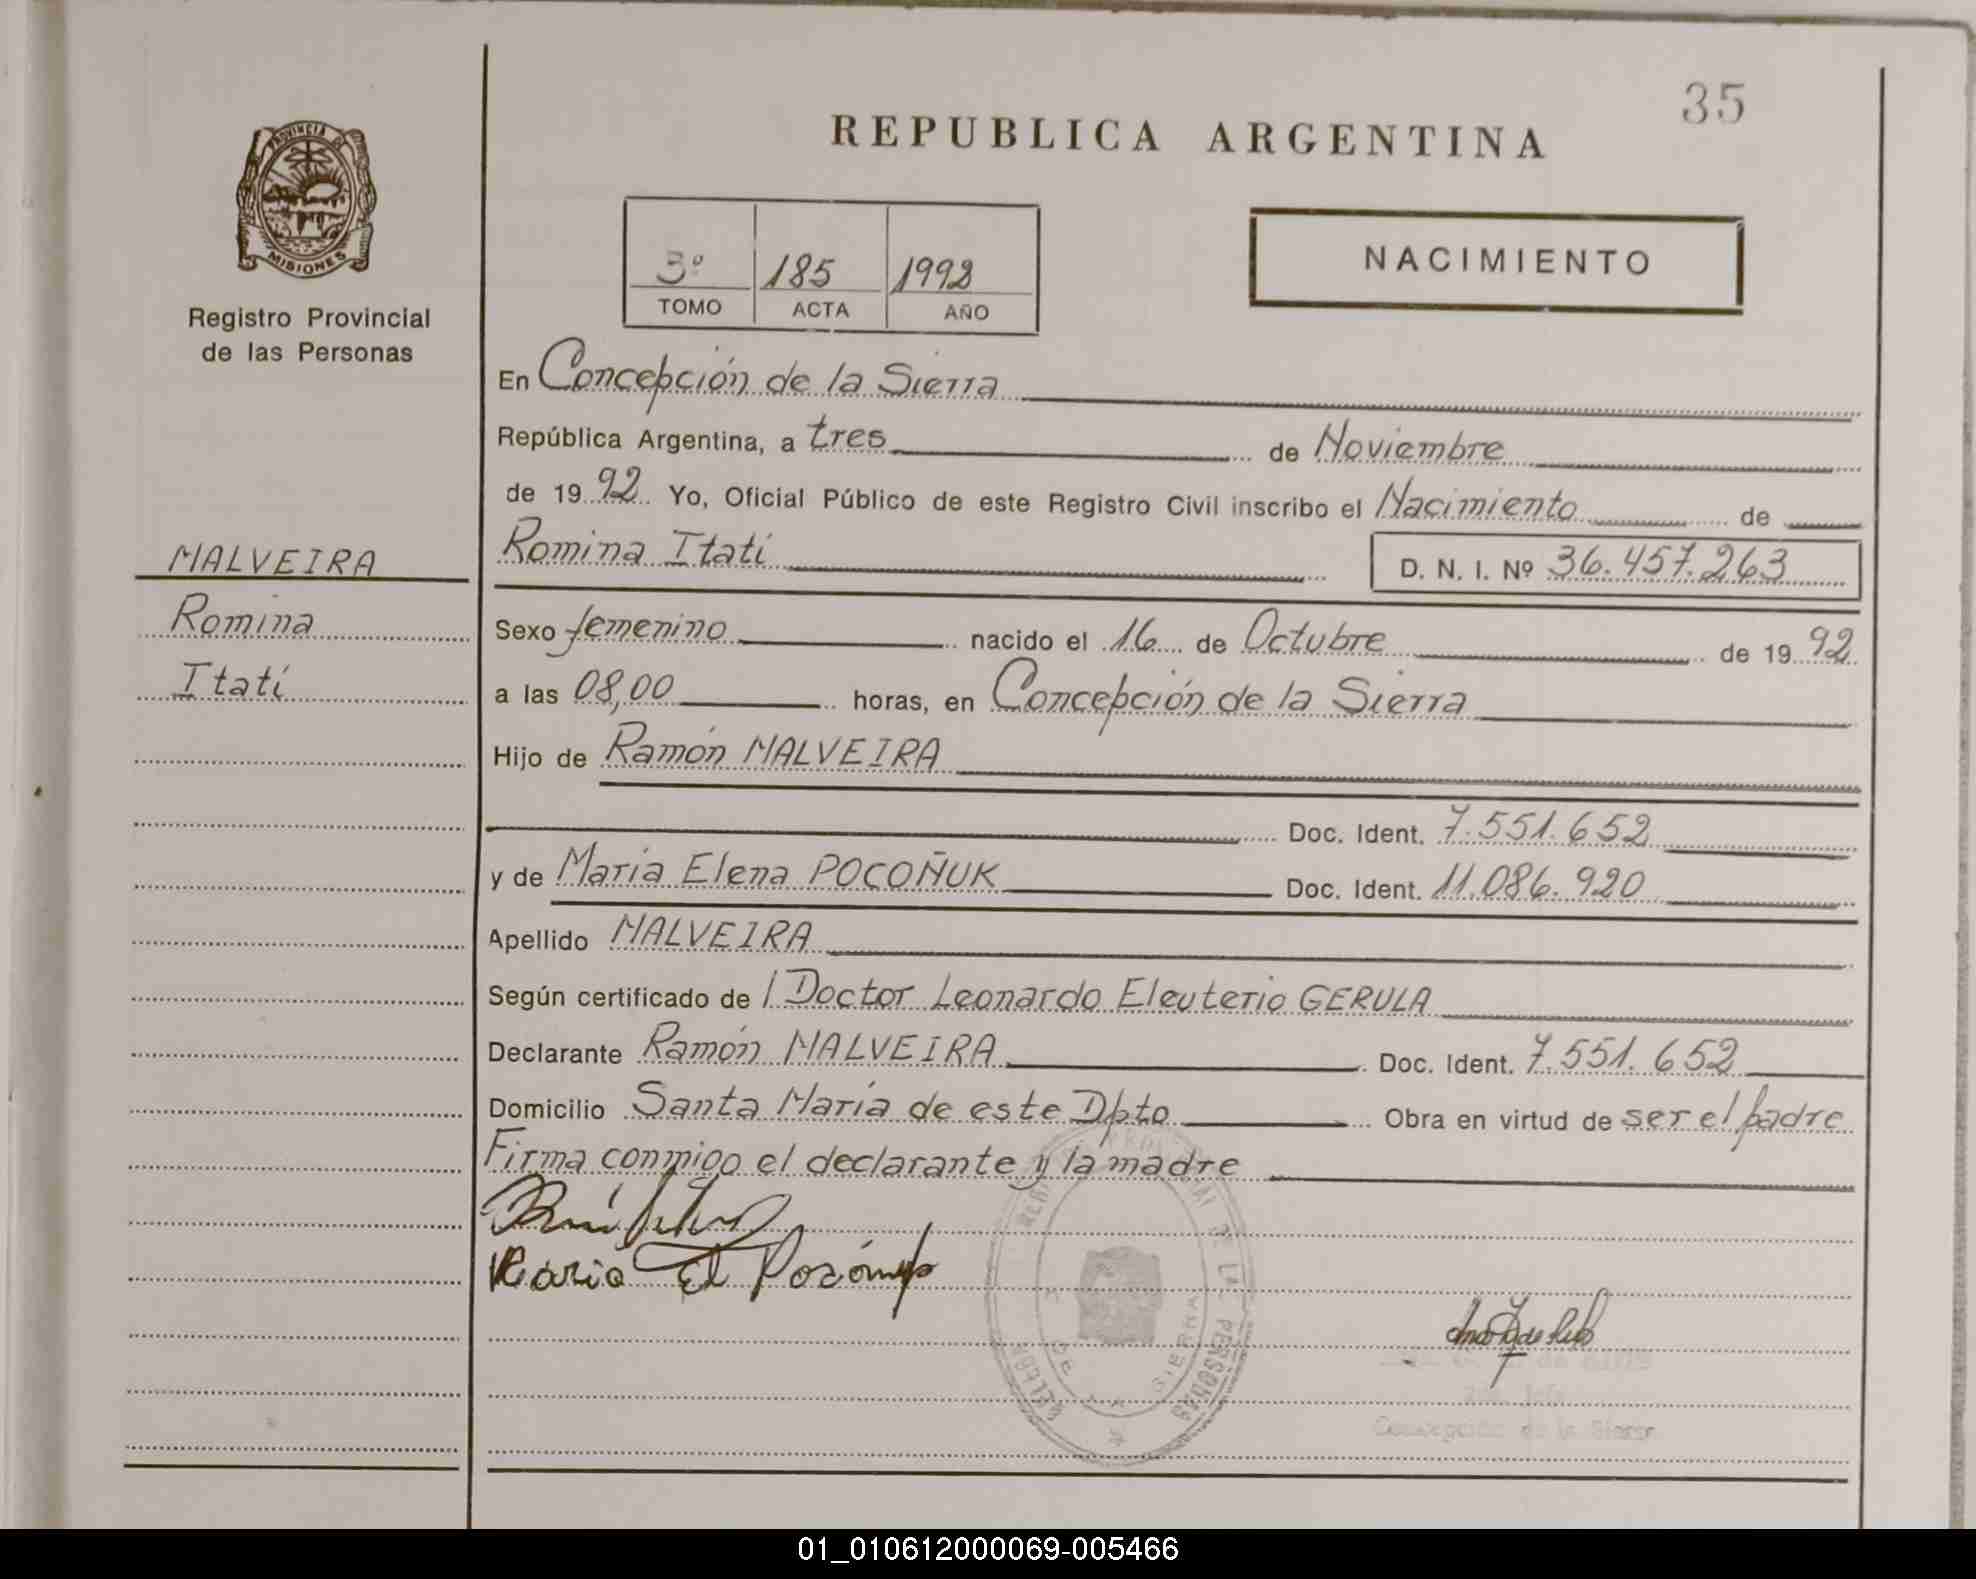 35
REPUBLICA ARGENTINA
PROVINCIA DE
MISIONES
Registro Provincial
de las Personas
3º 185 1992
TOMO ACTA AÑO
NACIMIENTO
En Concepción de la Sierra
República Argentina, a tres de Noviembre
de 1992 Yo, Oficial Público de este Registro Civil inscribo el Nacimiento de
MALVEIRA
Romina Itatí D. N. I. Nº 36.457.263
Romina
Sexo femenino nacido el 16 de Octubre de 1992
Itatí
a las 08,00 horas, en Concepción de la Sierra
Hijo de Ramón MALVEIRA
Doc. Ident. 7.551.652
y de María Elena POCOÑUK Doc. Ident. 11.086.920
Apellido MALVEIRA
Según certificado de l Doctor Leonardo Eleuterio GERULA
Declarante Ramón MALVEIRA Doc. Ident. 7.551.652
Domicilio Santa María de este Dpto Obra en virtud de ser el padre
Firma conmigo el declarante y la madre
Maria El
DE LAS PERSONAS
DE LA SIERRA
Concepción de la Sierra
01_010612000069-005466